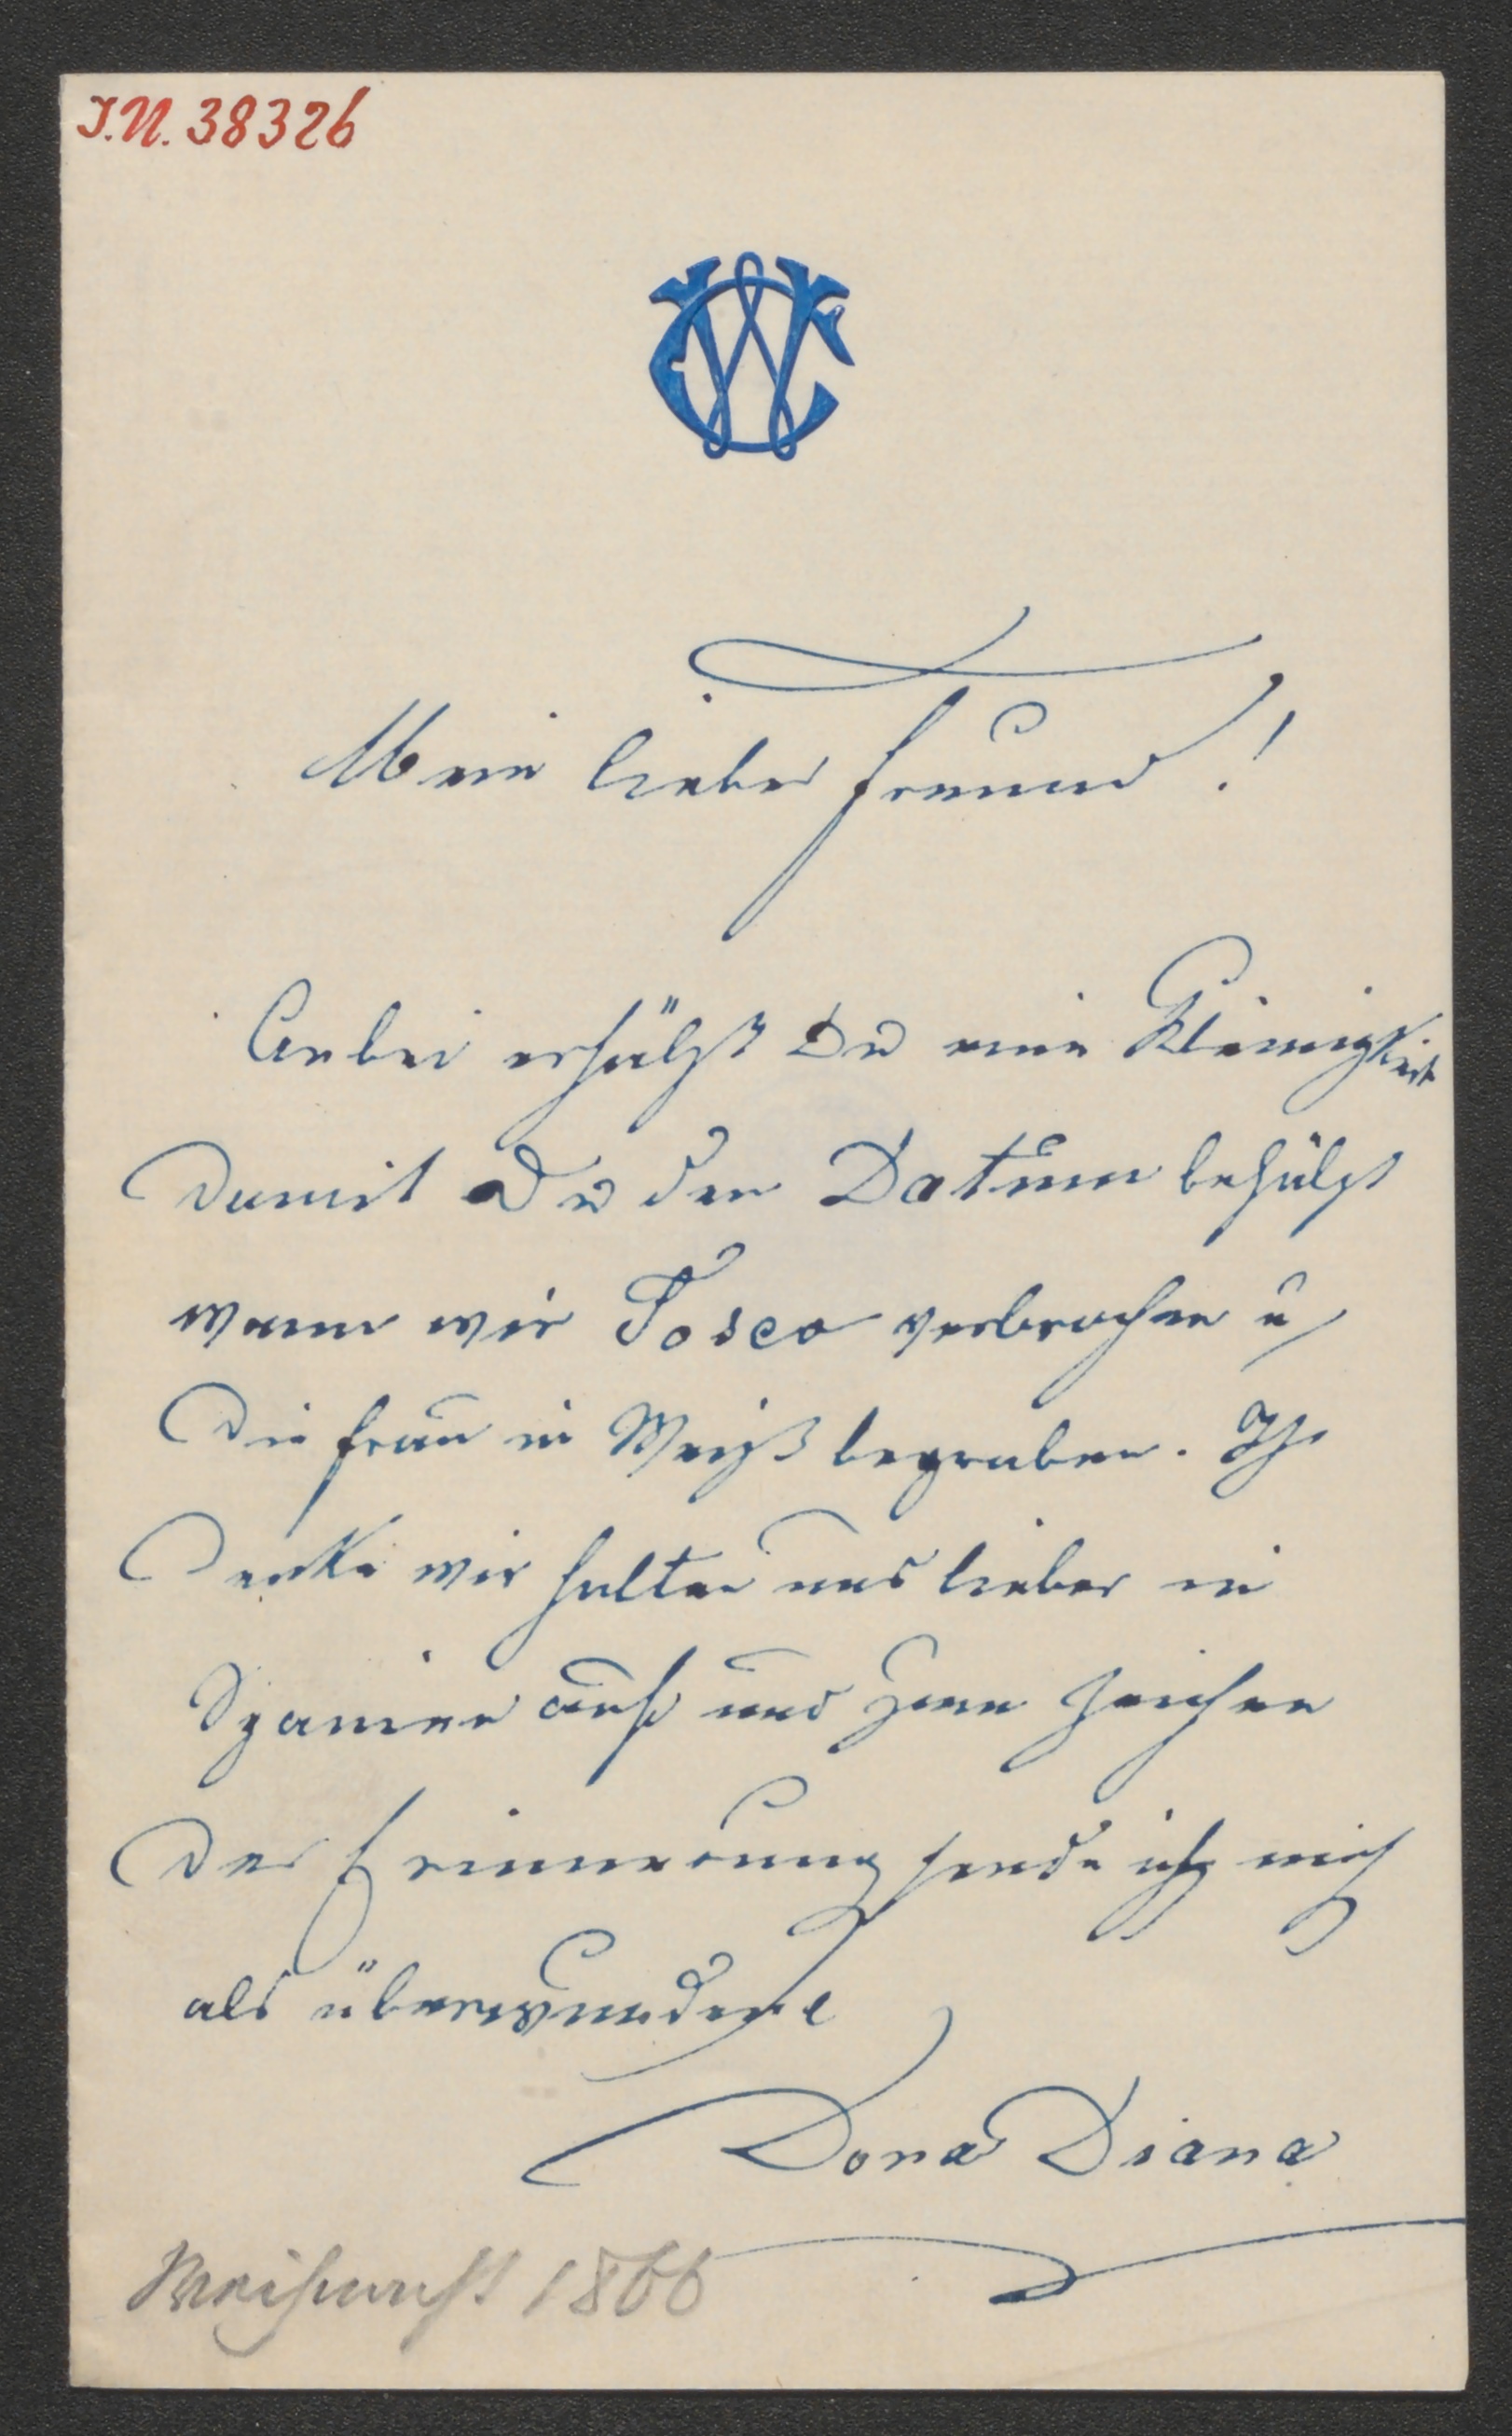 I.N. 38326
CW
Mein lieber Freund!
Anbei erhälst Du eine Kleinigkeit
damit Du den Datum behälst
wann wir Tosca verbrochen u
die Frau in Weiß begraben. Ich
denke wir halten uns lieber in
Spanien auf und zum Zeichen
der Erinnerung sende ich mich
als überwundene
Dona Diana
Weihnacht 1866